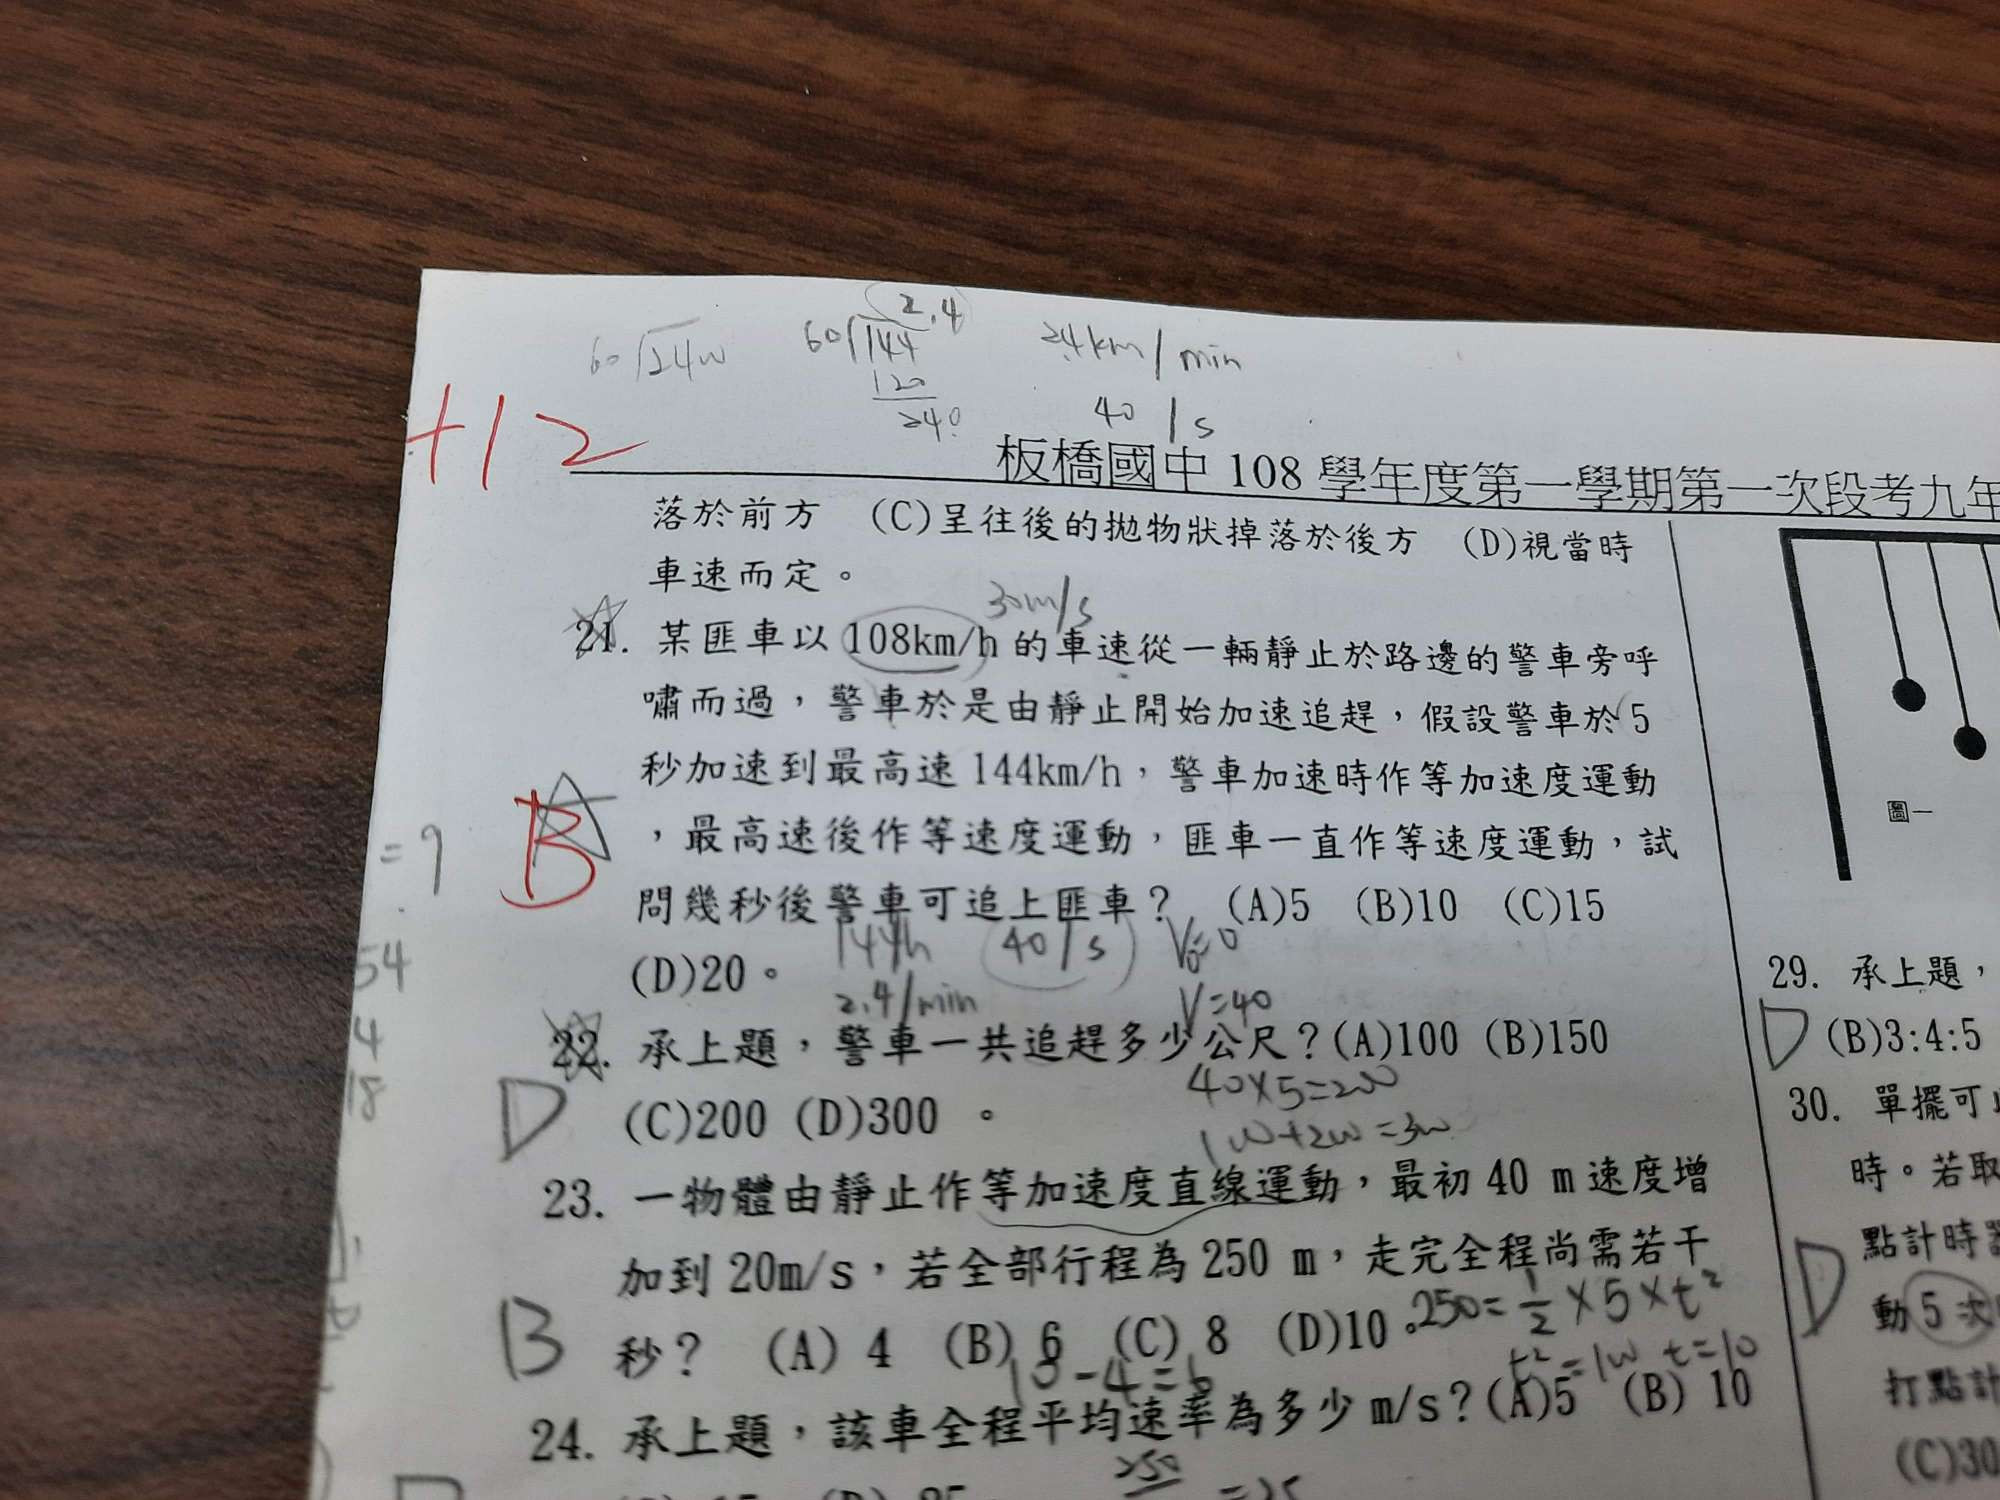 60 144 2.4 2.4km/min
120
240 40/s
+12
板橋國中 108 學年度第一學期第一次段考九年
落於前方 (C)呈往後的拋物狀掉落於後方 (D)視當時
車速而定。
30m/s
21. 某匪車以 108km/h 的車速從一輛靜止於路邊的警車旁呼
嘯而過，警車於是由靜止開始加速追趕，假設警車於 5
秒加速到最高速 144km/h，警車加速時作等加速度運動
B ，最高速後作等速度運動，匪車一直作等速度運動，試
問幾秒後警車可追上匪車？ (A)5 (B)10 (C)15
(D)20。 144h 40/s V₀=0
2.4/min V=40
22. 承上題，警車一共追趕多少公尺？(A)100 (B)150
D (C)200 (D)300 。 40×5=200
100+200=300
23. 一物體由靜止作等加速度直線運動，最初 40 m 速度增
加到 20m/s，若全部行程為 250 m，走完全程尚需若干
B 秒？ (A) 4 (B) 6 (C) 8 (D)10。 250=½×5×t²
10-4=6 t²=100 t=10
24. 承上題，該車全程平均速率為多少 m/s？(A)5 (B) 10
250 =25
=9
54
4
18
圖一
29. 承上題，
D (B)3:4:5
30. 單擺可
時。若取
D 點計時
動 5 次
打點計
(C)30